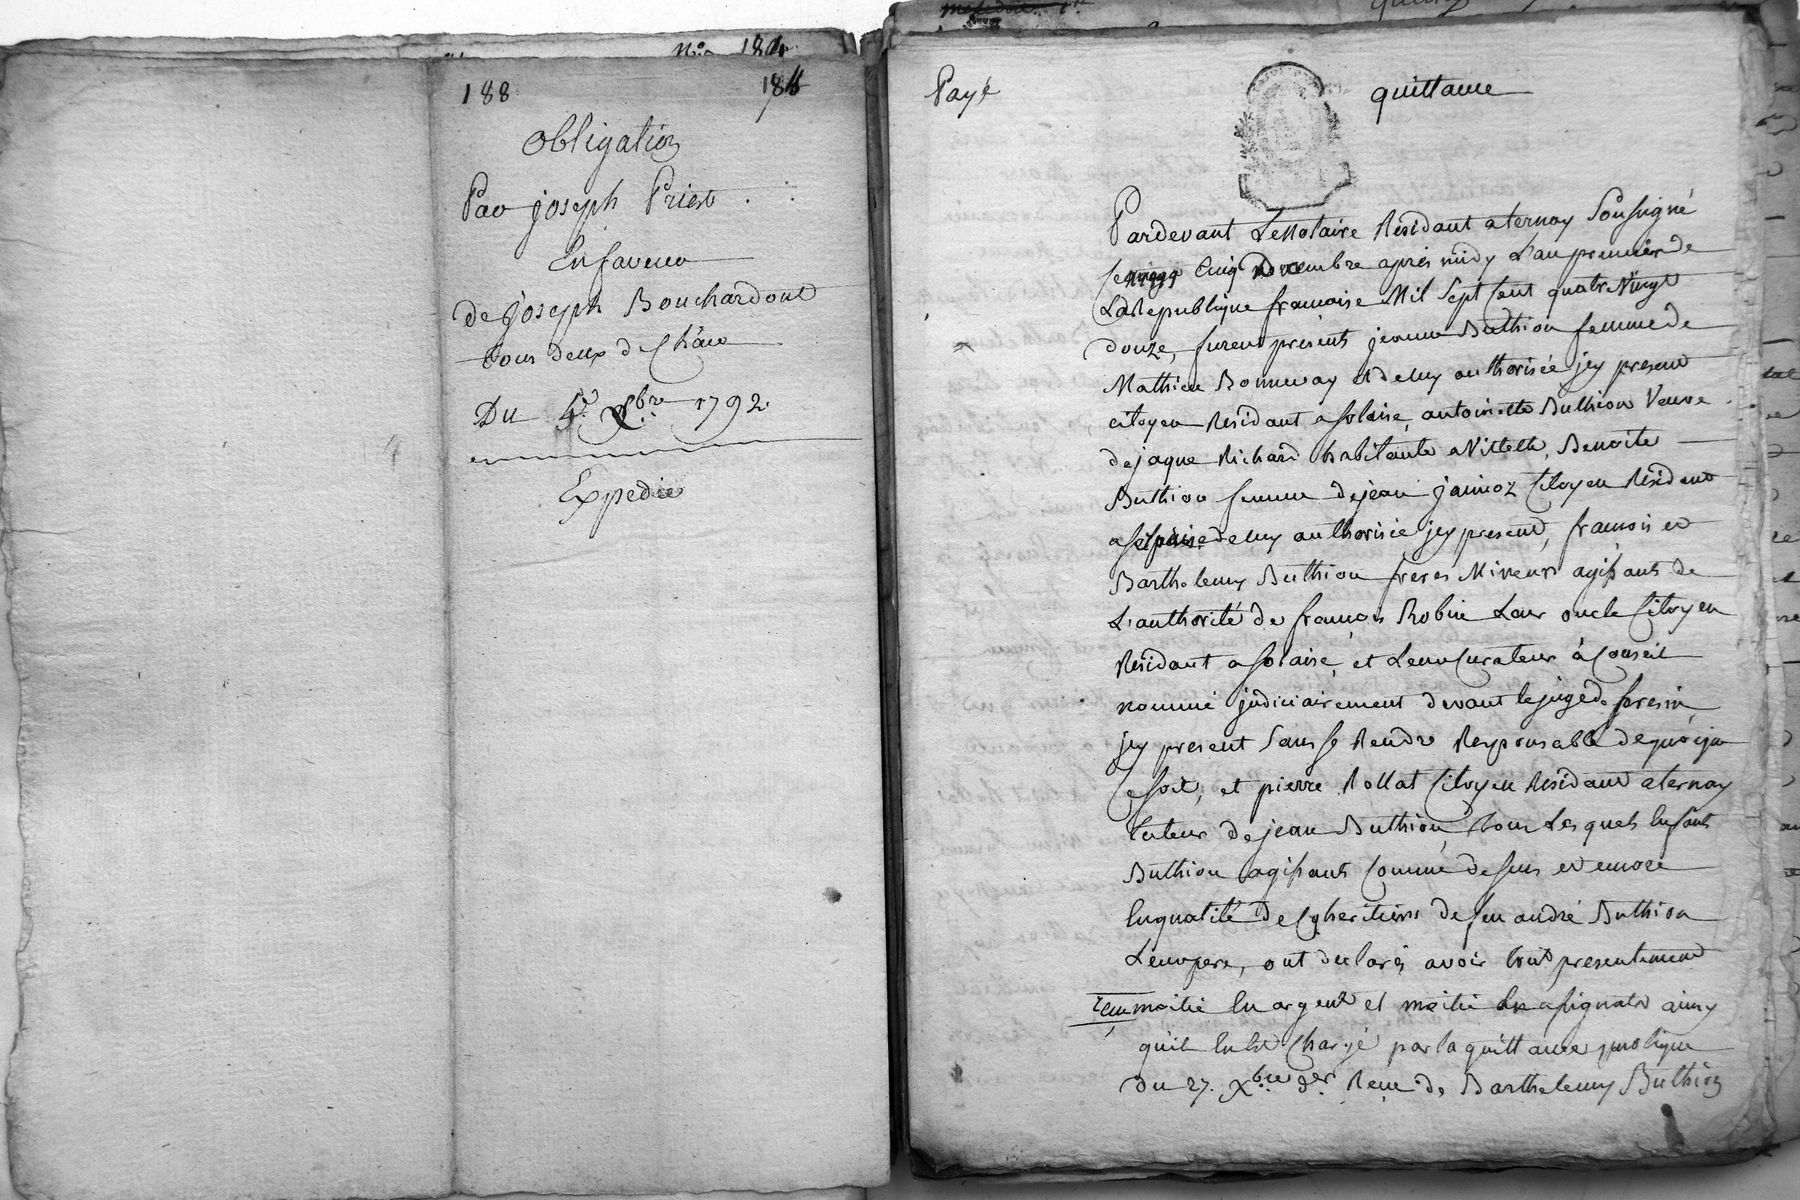 188
184
obligation
Par joseph Priest
En faveur
de joseph Bouchardout
tous deux de
Du 5e Xbre 1792.
Expedié
Payé
quittance
Pardevant Le Notaire Résidant a ternay Soussigné
Cinq après midy L'an premier de
La Republique francoise Mil Sept Cent quatre Vingt
douze, furent presents jeanne Buthion femme de
Mathieu Bonnevay et de luy authorisée jcy present
citoyen Résidant a Solaise, antoinette Buthion Veuve
de jaque Richard habitante a Benoite
Buthion femme de jean janinoz Citoyen Résidant
a de luy authorisée jcy present, francois et
Barthelemy Buthion freres Mineurs agissants de
L'authorité de francois Robin Leur oncle Citoyen
Résidant a Solaise, et Leur Curateur à Conseil
nommé judiciairement devant le juge de
jcy present Sans se Rendre Responsable de quoique
Ce soit, et pierre Rollat Citoyen Résidant a ternay
tuteur de jean Buthion, tous Lesquels Enfants
Buthion agissants Comme dessus et encore
En qualité de Coheritiers de feu andré Buthion
Leur pere, ont declarés avoir tout presentement
reçu moitié En argent et moitié En assignats ainsy
qu'il En est Chargé par la quittance publique
du 27. Xbre der. Reçue de Barthelemy Buthion